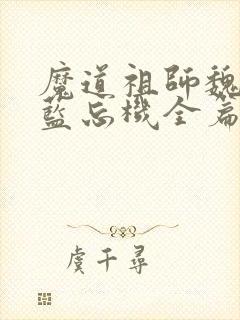 魔道祖師魏
藍忘機全篇
虞千尋